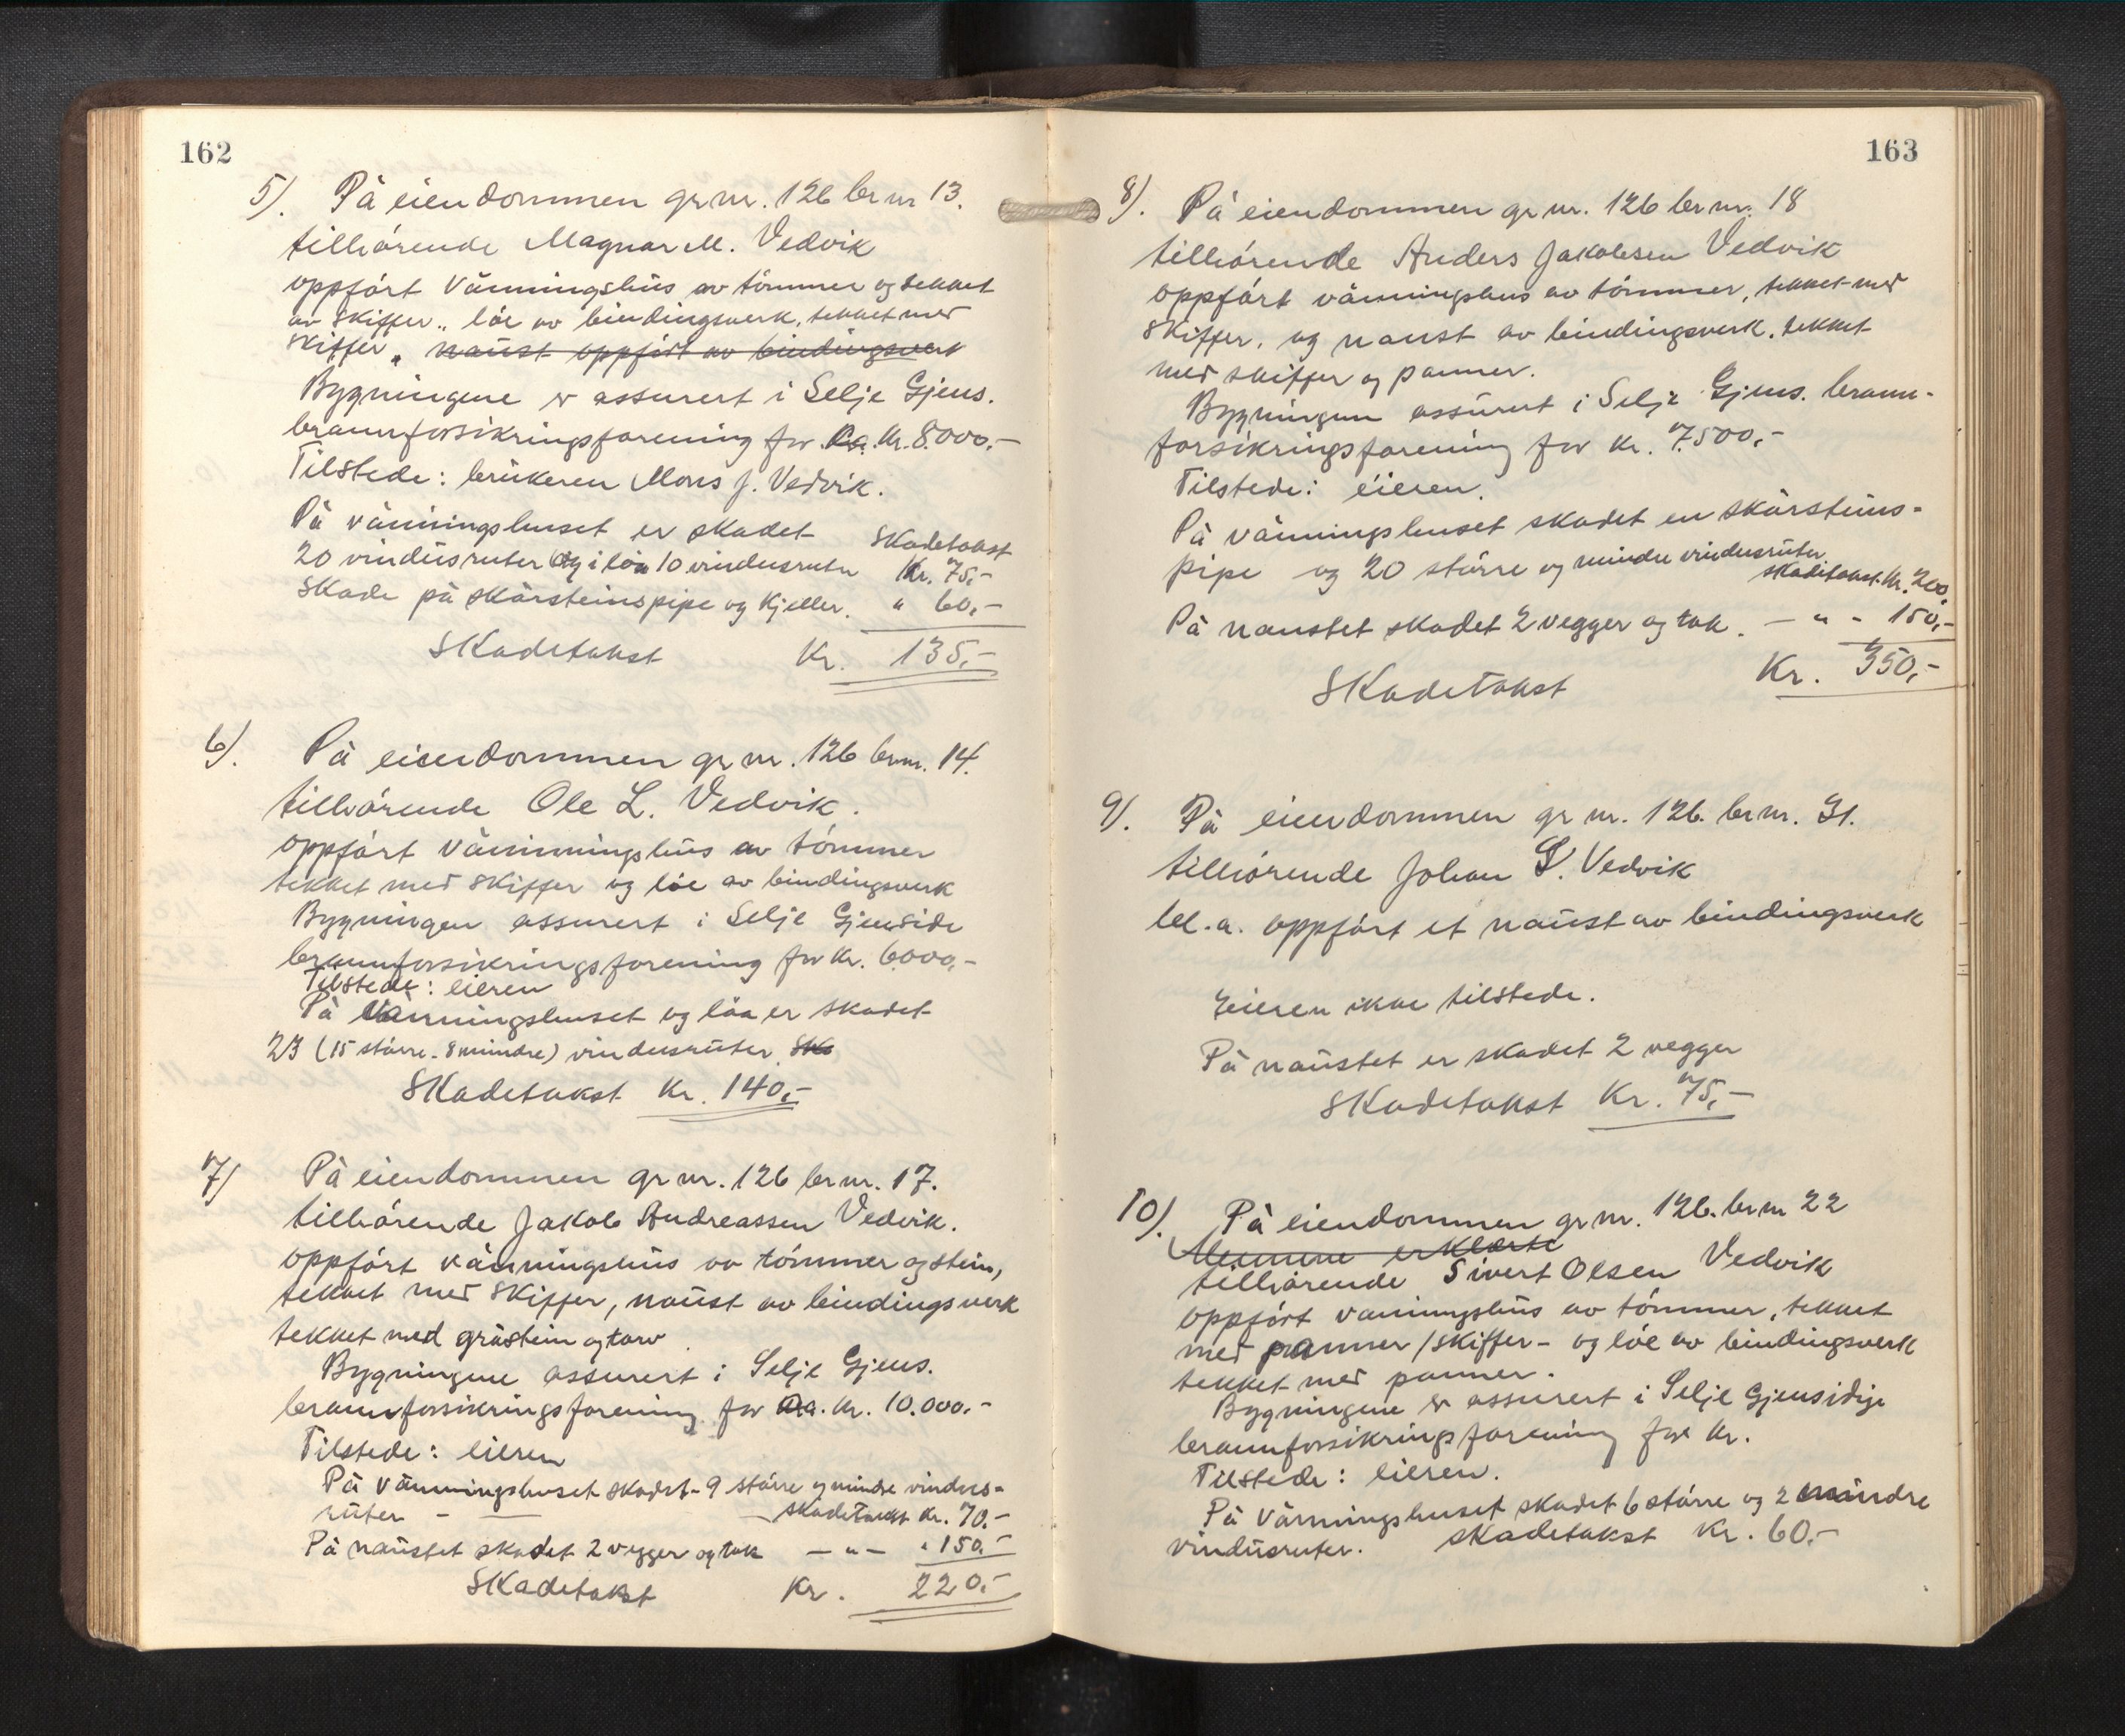 162
5). På eiendommen gr nr. 126 br nr 13.
tilhörende Magnar M. Vedvik
oppfört våningshus av tömmer og tekket
av skiffer., löe av bindingsverk, tekket med
skiffer. naust oppfört av bindingsverk
Bygningene er assurert i Selje Gjens.
brannforsikringsforening for Ca. Kr. 8.000.-
Tilstede: brukeren Mons J. Vedvik.
På våningshuset er skadet Skadetakst
20 vindusruter Og i löa 10 vindusruter Kr. 75,-
Skade på skårsteinspipe og Kjeller. " 60,-
Skadetakst Kr. 135,-
6). På eiendommen gr nr. 126 br nr. 14.
tilhörende Ole L. Vedvik.
oppfört våningshus av tömmer
tekket med skiffer og löe av bindingsverk
Bygningen assurert i Selje Gjenside
brannforsikringsforening for Kr. 6000,-
Tilstede: eieren
På Våningshuset og löa er skadet
23 (15 större - 8 mindre) vindusruter. Sk
Skadetakst Kr. 140,-
7) På eiendommen gr nr. 126 br nr. 17.
tilhörende Jakob Andreassen Vedvik.
oppfört våningshus av tömmer og stein,
tekket med skiffer, naust av bindingsverk
tekket med gråstein og torv.
Bygningene assurert i Selje Gjens.
brannforsikringsforening for Ca. Kr. 10.000.-
Tilstede: eieren
På våningshuset skadet - 9 större og mindre vindus-
ruter - — Skadetakst Kr. 70.-
På naustet skadet 2 vegger og tak — " — " 150.-
Skadetakst Kr. 220.-
163
8). På eiendommen gr nr. 126 br nr. 18
tilhörende Anders Jakobsen Vedvik
oppfört våningshus av tömmer, tekket med
skiffer, og naust av bindingsverk, tekket
med skiffer og panner.
Bygningen assurert i Selje Gjens. brann-
forsikringsforening for Kr. 7.500,-
Tilstede: eieren.
På våningshuset skadet en skårsteins-
pipe og 20 större og mindre vindusruter
skadetakst Kr. 200,
På naustet skadet 2 vegger og tak. — " - 150,-
Skadetakst Kr. 350,-
9). På eiendommen gr nr. 126. br nr. 31.
tilhörende Johan S. Vedvik
bl. a. oppfört et naust av bindingsverk
Eieren ikke tilstede.
På naustet er skadet 2 vegger
Skadetakst Kr. 75,-
10). På eiendommen gr nr. 126. br nr 22
erklærte
tilhörende Sivert Olsen Vedvik
oppfört våningshus av tömmer, tekket
med panner/skiffer - og löe av bindingsverk
tekket med panner.
Bygningene er assurert i Selje Gjensidige
brannforsikringsforening for Kr.
Tilstede: eieren.
På våningshuset skadet 6 större og 2 mindre
vindusruter. skadetakst Kr. 60.-